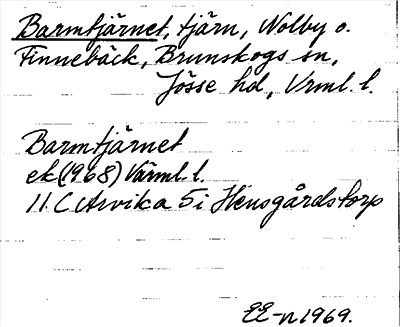 Barmtjärnet, tjärn, Nolby o.
Finnebäck, Brunskogs sn,
Jösse hd, Vrml. l.
Barmtjärnet
ek (1968) Värml. l.
11 C Arvika 5 i Hensgårdstorp
EE-n 1969.